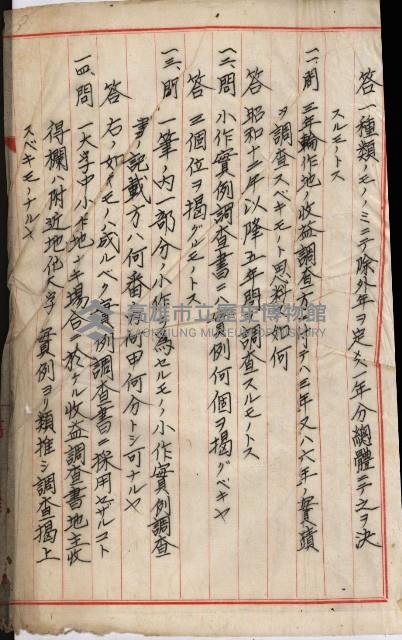 答 一種類ノモノミニテ除外年ヲ定メ八年分總體ニテ之ヲ決
スルモノトス
一一、問 三年輪作地ノ收益調査方ニ付テハ三年又ハ六年ノ實蹟
ヲ調査スベキモノト思料スル如何
答 昭和十二年以降五年間調査スルモノトス
一二、問 小作實例調査書ニハ實例何個ヲ揭グベキヤ
答 三個位ヲ揭グルモノトス
一三、問 一筆ノ內一部分ノ小作ヲ為セルモノノ小作實例調査
書ノ記載方ハ何番ノ何甲何分トシ可ナルヤ
答 右ノ如キモノハ成ルベク實例調査書ニ採用セザルコト
一四、問 一大字中小作地ナキ場合ニ於ケル收益調査書地主收
得欄ハ附近地他大字ノ實例ヨリ類推シ調査揭上
スベキモノナルヤ
高雄市立歷史博物館
KAOHSIUNG MUSEUM OF HISTORY